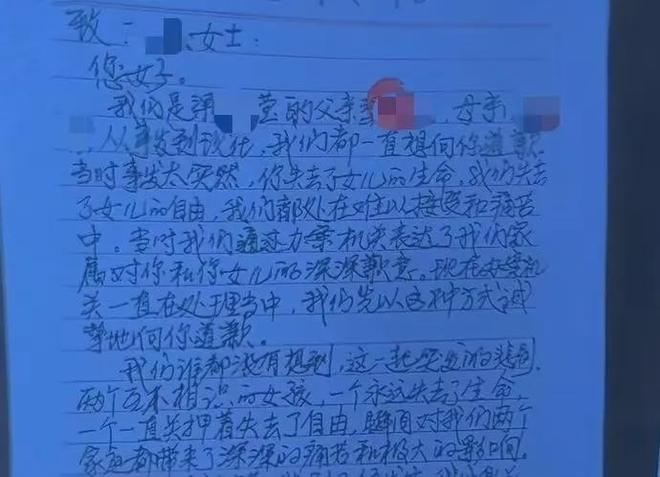 致： 女士：
您好。
我们是梁 萱的父亲 ，母亲
，从事发到现在，我们都一直想向你道歉
当时事发太突然，你失去了女儿的生命，我们失去
了女儿的自由，我们都处在难以接受和痛苦
中。当时我们通过办案机关表达了我们家
属对你和你女儿的深深歉意。现在办案机
关一直在处理当中，我们先以这种方式诚
挚地向你道歉。
我们谁都没有想到，这一起突发的悲剧，
两个互不相识的女孩，一个永远失去了生命，
一个一直关押着失去了自由，瞬间对我们两个
家庭都带来了深深的痛苦和极大的影响。